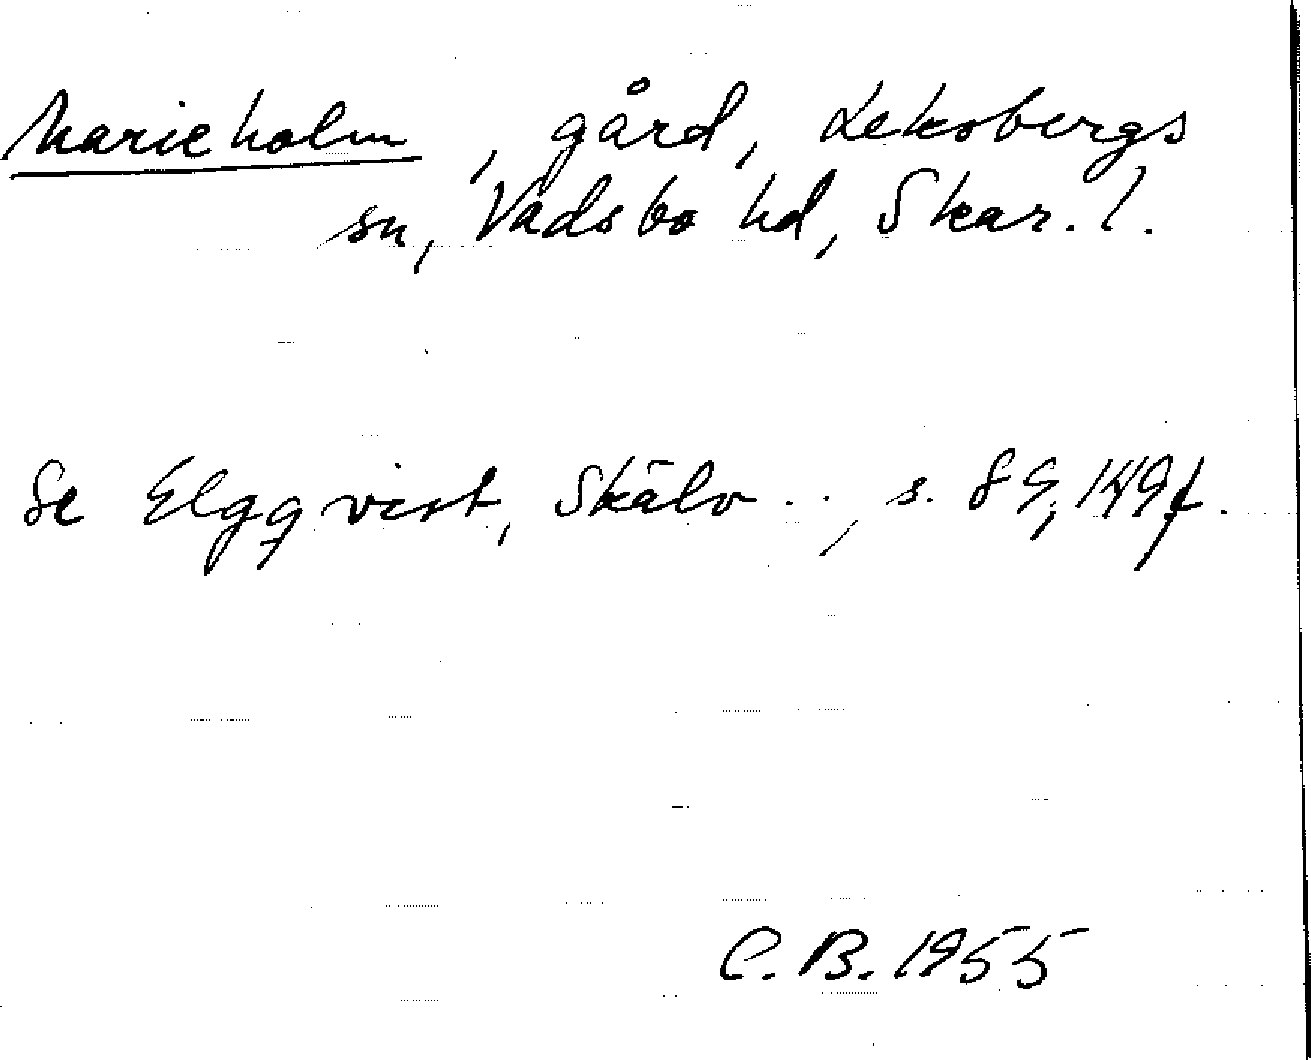 Marieholm, gård, Leksbergs
sn, Vadsbo hd, Skar. l.
Se Elgqvist, Skälv .., s. 89, 149f.
C. B. 1955